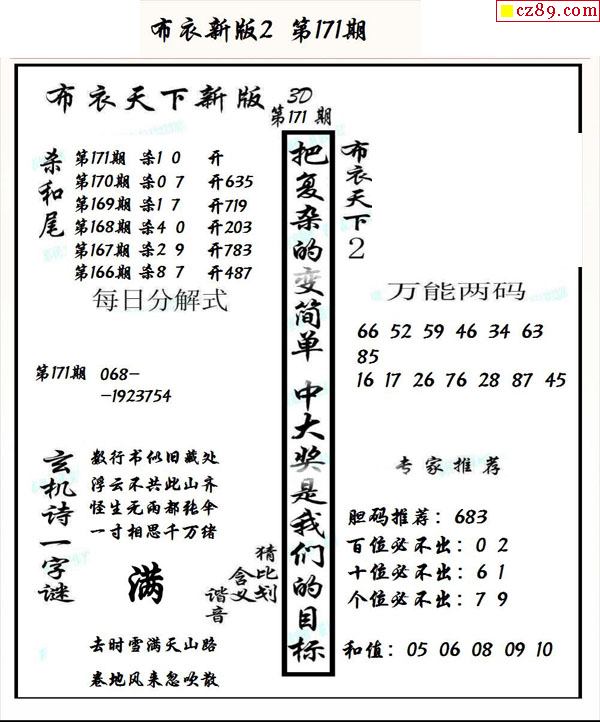 cz89.com
布衣新版2 第171期
布衣天下新版 3D
第171期
杀和尾
第171期 杀1 0 开
第170期 杀0 7 开635
第169期 杀1 7 开719
第168期 杀4 0 开203
第167期 杀2 9 开783
第166期 杀8 7 开487
每日分解式
第171期 068-
-1923754
玄机诗一字谜
数行书似旧藏处
浮云不共此山齐
怪生无雨都张伞
一寸相思千万绪
满
猜比划
含义
谐音
去时雪满天山路
卷地风来忽吹散
把复杂的变简单 中大奖是我们的目标
布衣天下2
万能两码
66 52 59 46 34 63
85
16 17 26 76 28 87 45
专家推荐
胆码推荐：683
百位必不出：0 2
十位必不出：6 1
个位必不出：7 9
和值：05 06 08 09 10